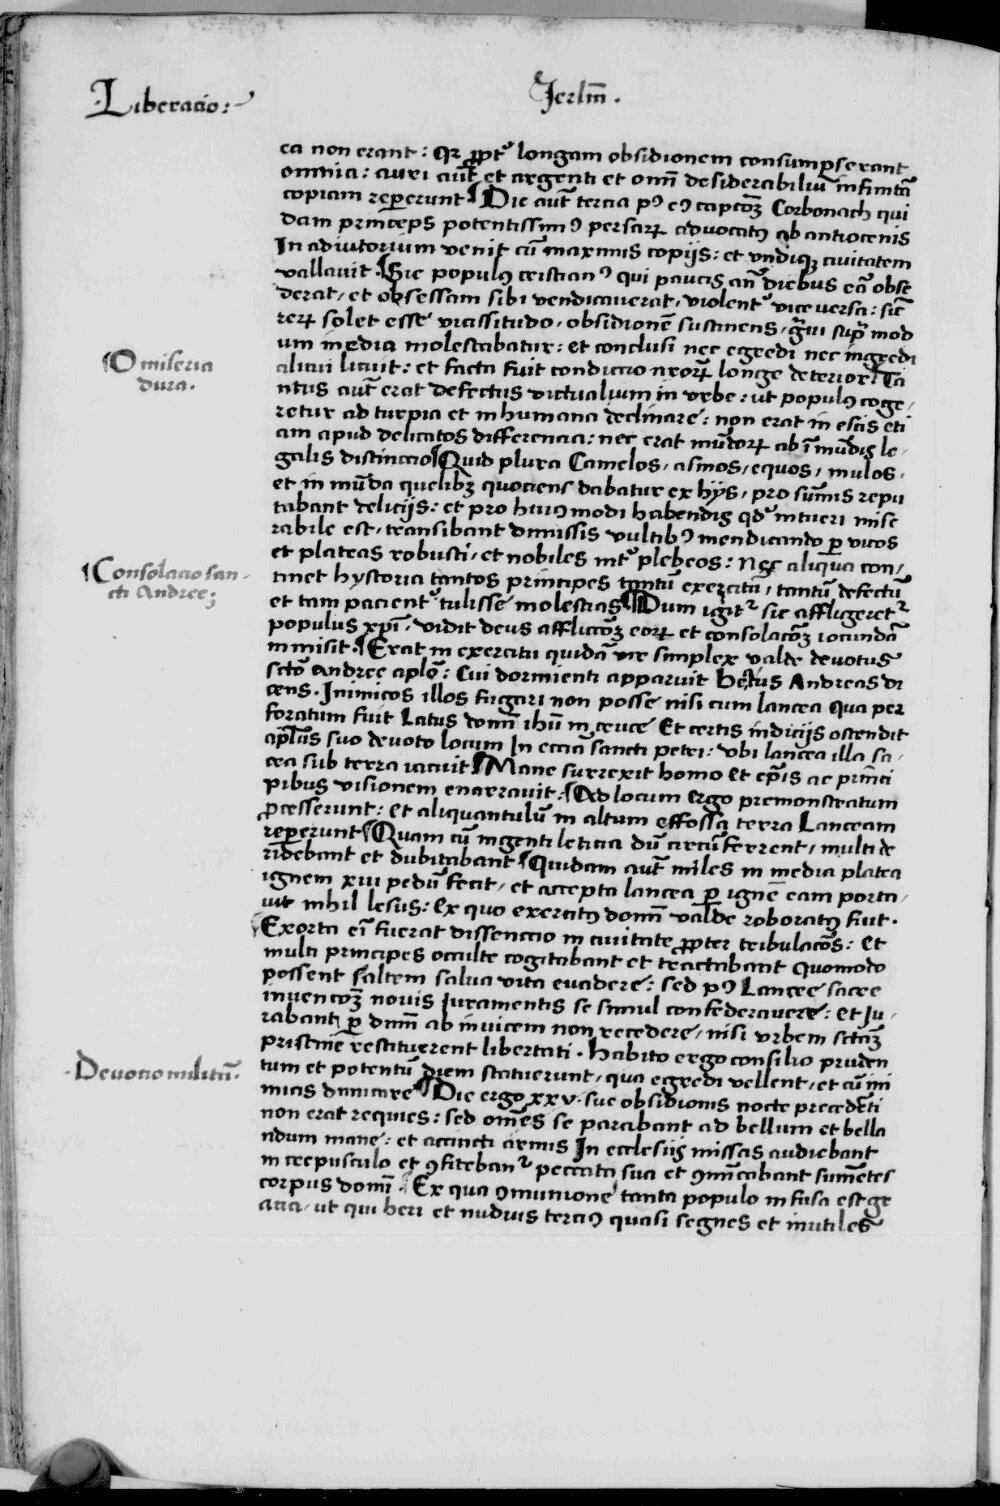 Liberacio:
Jerlm̄.
ea non erant: Qr ꝓpt᷒ longam obsidionem consumpserant
omnia: auri aūt et argenti et om̄ desiderabiliū infinitā
copiam repererunt ¶ Die aūt tercia pꝰ eiꝰ capcōȝ Corbonach qui
dam princeps potentissimꝰ persarꝝ advocatꝰ ab antiocenis
In adiutorium venit cū maximis copijs: et vndiqȝ civitatem
vallavit. ¶ Sic populꝰ cristianꝰ qui paucis an̄ diebus eā obse
derat, et obsessam sibi vendicaverat, violent᷒ vice versa: sic̄
rerꝝ solet esse vicissitudo, obsidionē sustinens, gͣui supͣ mod
um inedia molestabatur: et conclusi nec egredi nec ingredi
alicui licuit: et facta fuit condiccio nr̄orꝝ longe deterior ¶ Ta
¶ O miseria
dura.
ntus aūt erat defectus victualium in vrbe: ut populꝰ coge,
retur ad turpia et inhumana declinare: non erat in escis eti
am apud delicatos differencia: nec erat mūdorꝝ ab īmūdis le,
galis distinccio ¶ Quid plura Camelos, asinos, equos, mulos,
et inmūda quelibȝ quociens dabatur ex hys, pro sūmis repu
tabant delicijs: et pro huiꝰmodi habendis qd᷒ intueri mise
rabile est, transibant dimissis vultibꝰ mendicando ꝑ vicos
et plateas robusti, et nobiles int᷒ plebeos: Nec aliqua con,
tinet hystoria tantos principes tantū exercitū, tantū defectū
¶ Consolacio san-
cti Andree;
et tam pacient᷒ tulisse molestias ¶ Dum igit᷒ sic affligeret᷒
populus xp̄i, vidit deus afflictōȝ eorꝝ et consolacōȝ iocundā
inmisit. ¶ Erat in exercitu quidā vir simplex valde devotus
scto Andree aplō: Cui dormienti apparuit beatus Andreas di
cens. Inimicos illos fugari non posse nisi cum lancea qua per
foratum fuit latus domī ihū in cruce Et certis indicijs ostendit
apl̄us suo devoto locum In eccīa sancti petri: vbi lancea illa sa,
cra sub terra iacuit ¶ Mane surrexit homo et ep̄is ac prīnci
pibus visionem enarravit: ¶ Ad locum ergo premonstratum
ꝓcesserunt: et aliquantulū in altum effossa terra Lanceam
repererunt ¶ Quam cū ingenti leticia dū circūferrent, multi de
ridebant et dubitabant ¶ Quidam aūt miles in media platea
ignem xiii pedū fecit, et accepta lancea ꝑ ignē eam porta,
vit nihil lesus: ex quo exercitꝰ domī valde roboratꝰ fuit.
¶ Exorta eī fuerat dissenccio in civitate ꝓpter tribulacōs: et
multi principes occulte cogitabant et tractabant quomodo
possent saltem salva vita evadere: sed pꝰ Lancee sacre
invencōȝ novis Iuramentis se simul confederavere: et Ju,
rabant ꝑ dnm̄ ab invicem non recedere, nisi vrbem sctāȝ
pristine restituerent libertati. habito ergo consilio pruden
.Devocio militū.
tum et potentū diem statuerunt, qua egredi vellent, et cū ini
micis dimicare ¶ Die ergo xxv. sue obsidionis nocte precedēti
non erat requies: sed om̄es se parabant ad bellum et bella
ndum mane: et accincti armis In ecclesijs missas audiebant
in crepusculo et ꝯfiteban᷒ peccata sua et ꝯmūicabant sumētes
corpus domī ¶ Ex qua ꝯmunione tanta populo infusa est gr
acia, ut qui heri et nudius terciꝰ quasi segnes et inutiles